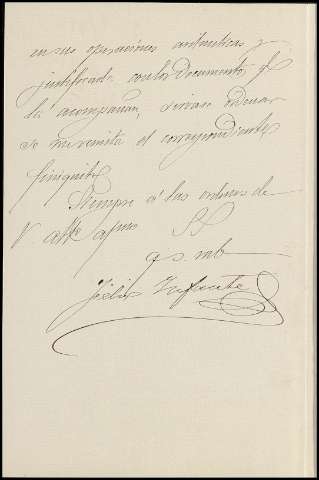 en sus operaciones aritmeticas y
justificada con los documentos q.e
la acompañan, sirvase ordenar
se me remita el correspondiente
finiquito.
Siempre á las ordenes de
V. affo. amo. SS
q. s. m. b.
Felix Infante